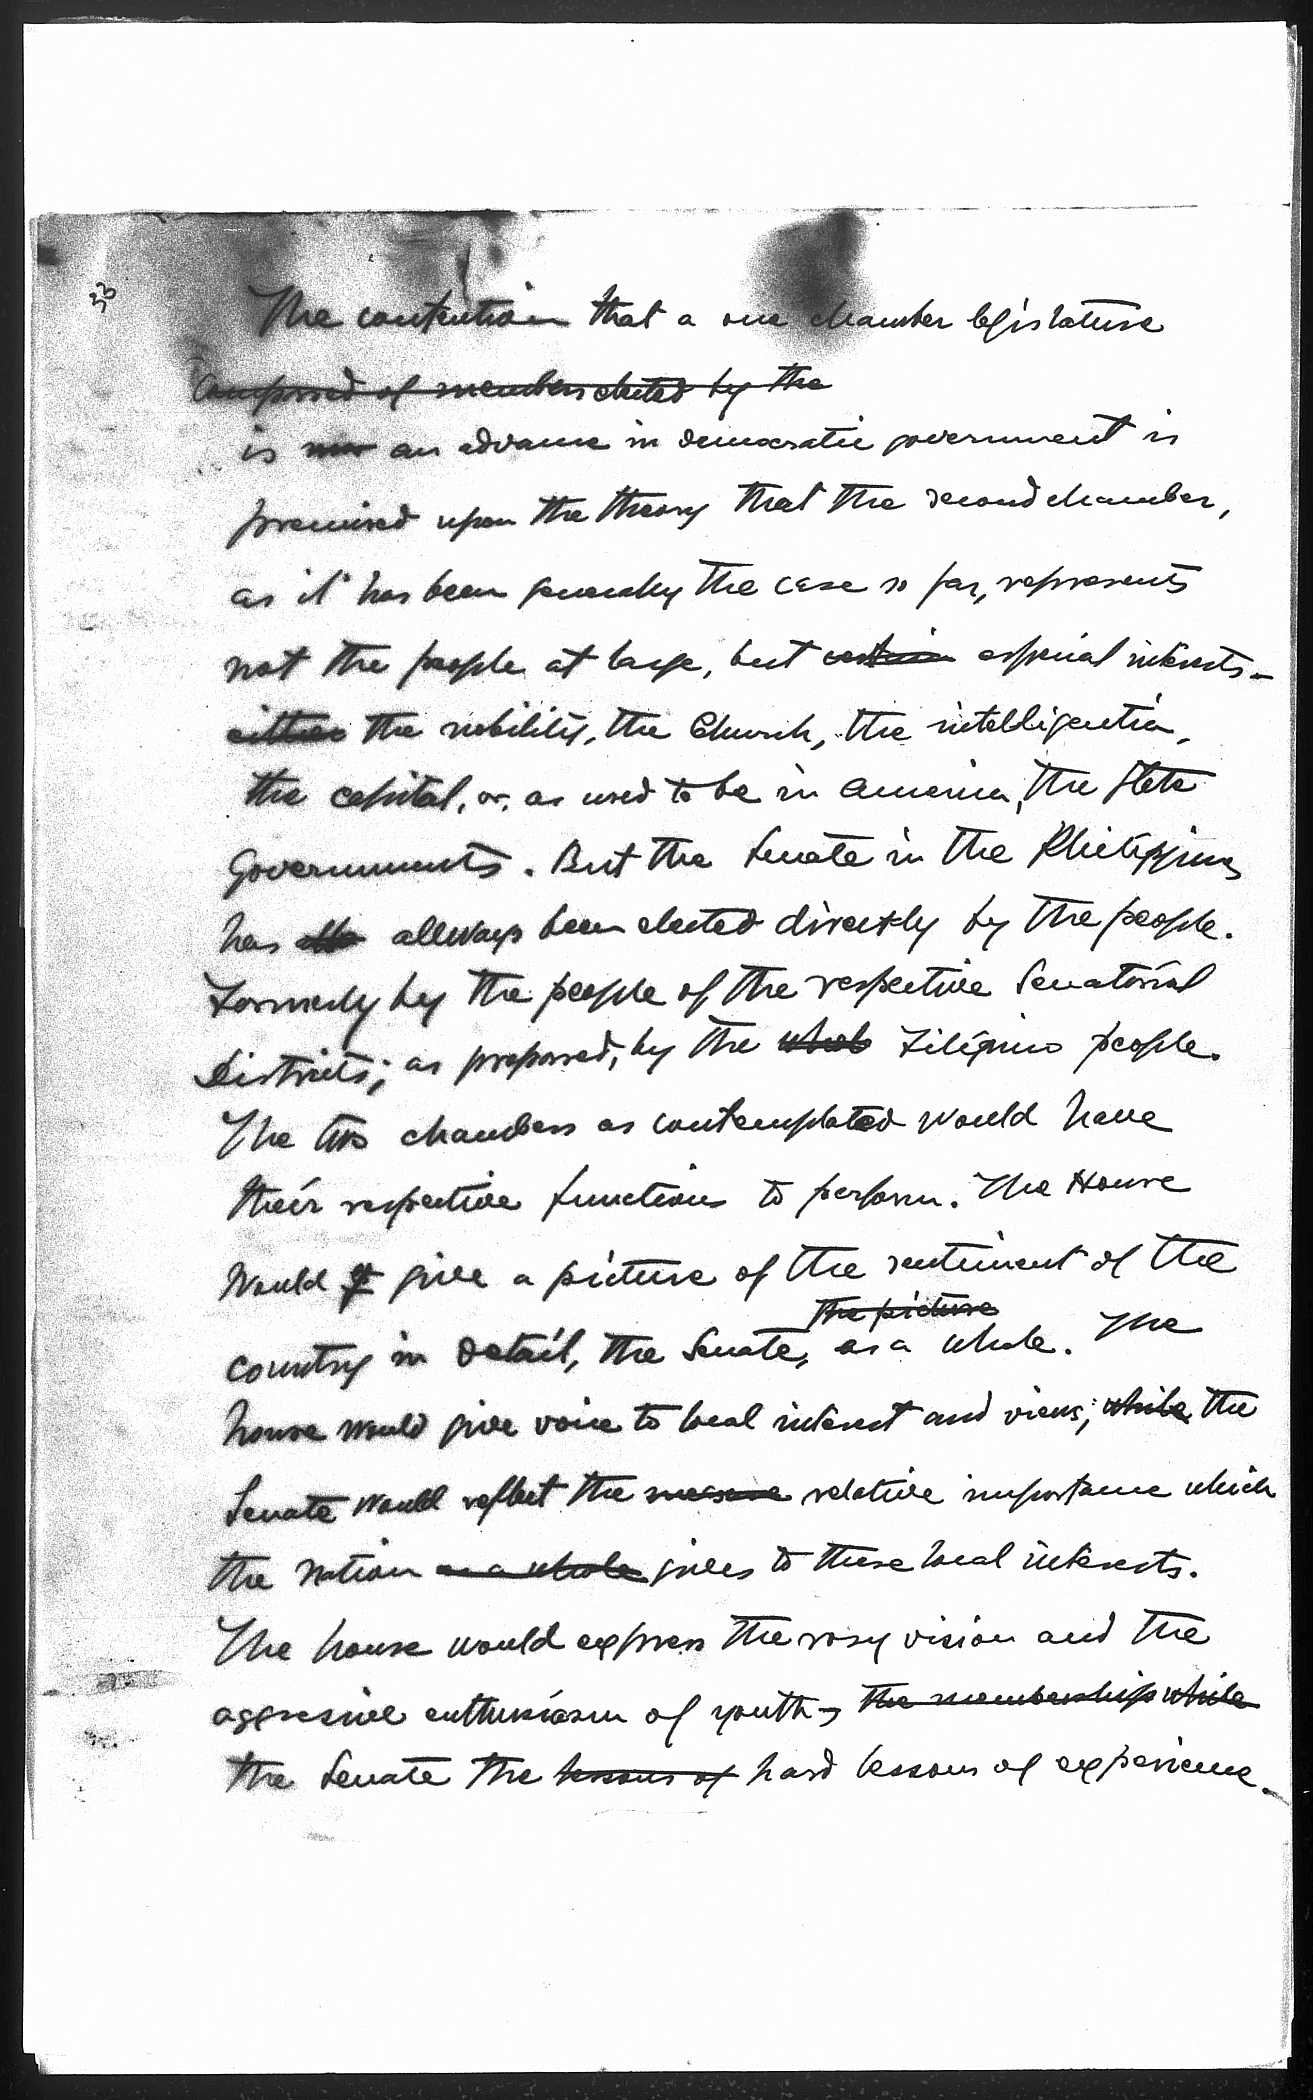 33
The contention that a one chamber legislature
Composed of members elected by the
is an advance in democratic government is
premised upon the theory that the second chamber,
as it has been generally the case so far, represents
not the people at large, but certain especial interests -
either the nobility, the Church, the intelligentia,
the capital, or, as used to be in America, the State
Governments. But the Senate in the Philippines
has allways been elected directly by the people.
Formerly by the people of the respective Senatorial
Districts; as proposed, by the whole Filipino people.
The two chambers as contemplated would have
their respective functions to perform. The House
Would give a picture of the sentiment of the
the picture
country in detail, the Senate, as a whole. The
house would give voice to local interest and views; while the
Senate would reflect the measure relative importance which
the nation as a whole gives to these local interests.
The house would express the rosy vision and the
aggresive enthusiasm of youth, the membership while
the Senate the lessons of hard lessons of experience.